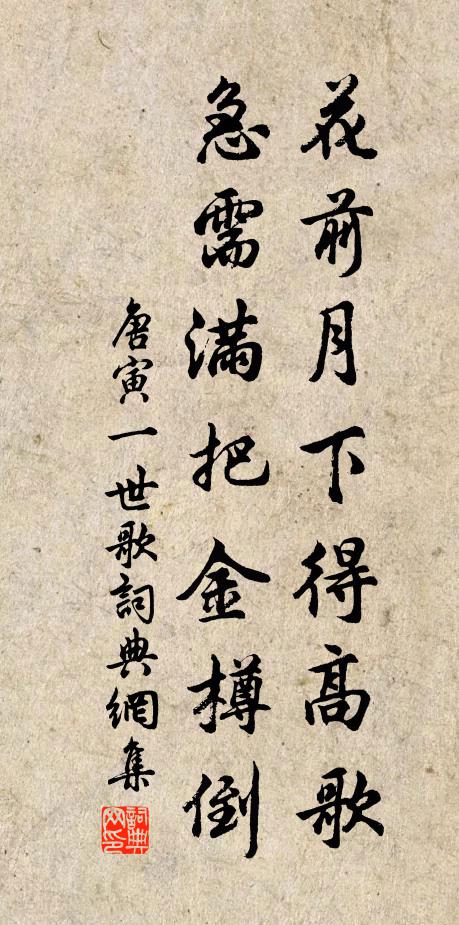 花前月下得高歌
急需滿把金樽倒
唐寅一世歌詞典網集
詞典网印